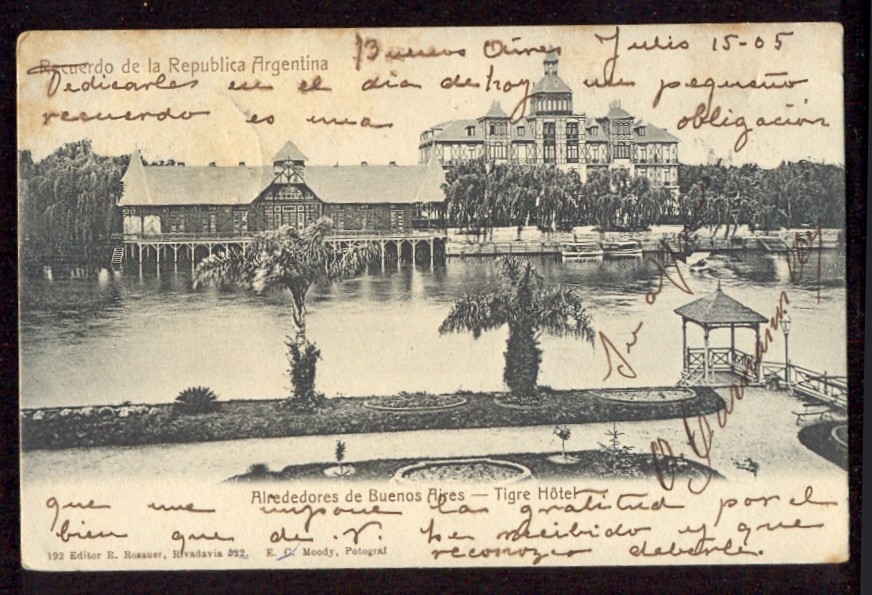 Recuerdo de la Republica Argentina
Buenos Aires Julio 15-05
Dedicarles en el dia de hoy un pequeño
recuerdo es una obligación
Su
que me impone la gratitud por el
bien que de V. he recibido y que
reconozco deberle.
Alrededores de Buenos Aires — Tigre Hôtel
192 Editor R. Rosauer, Rivadavia 522. E. C. Moody, Potograf